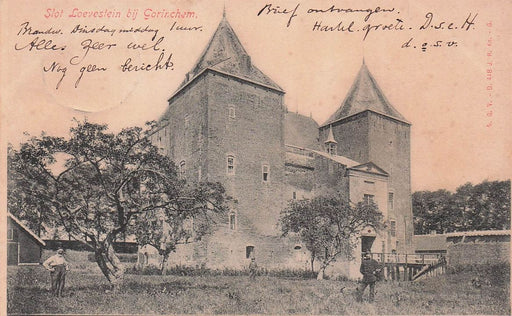 Slot Loevestein bij Gorinchem.
Brandw. Dinsdagmiddag uur.
Alles zeer wel.
Nog geen bericht.
Brief ontvangen.
Hartel. groete. D.s.c H.
d. o. s. v.